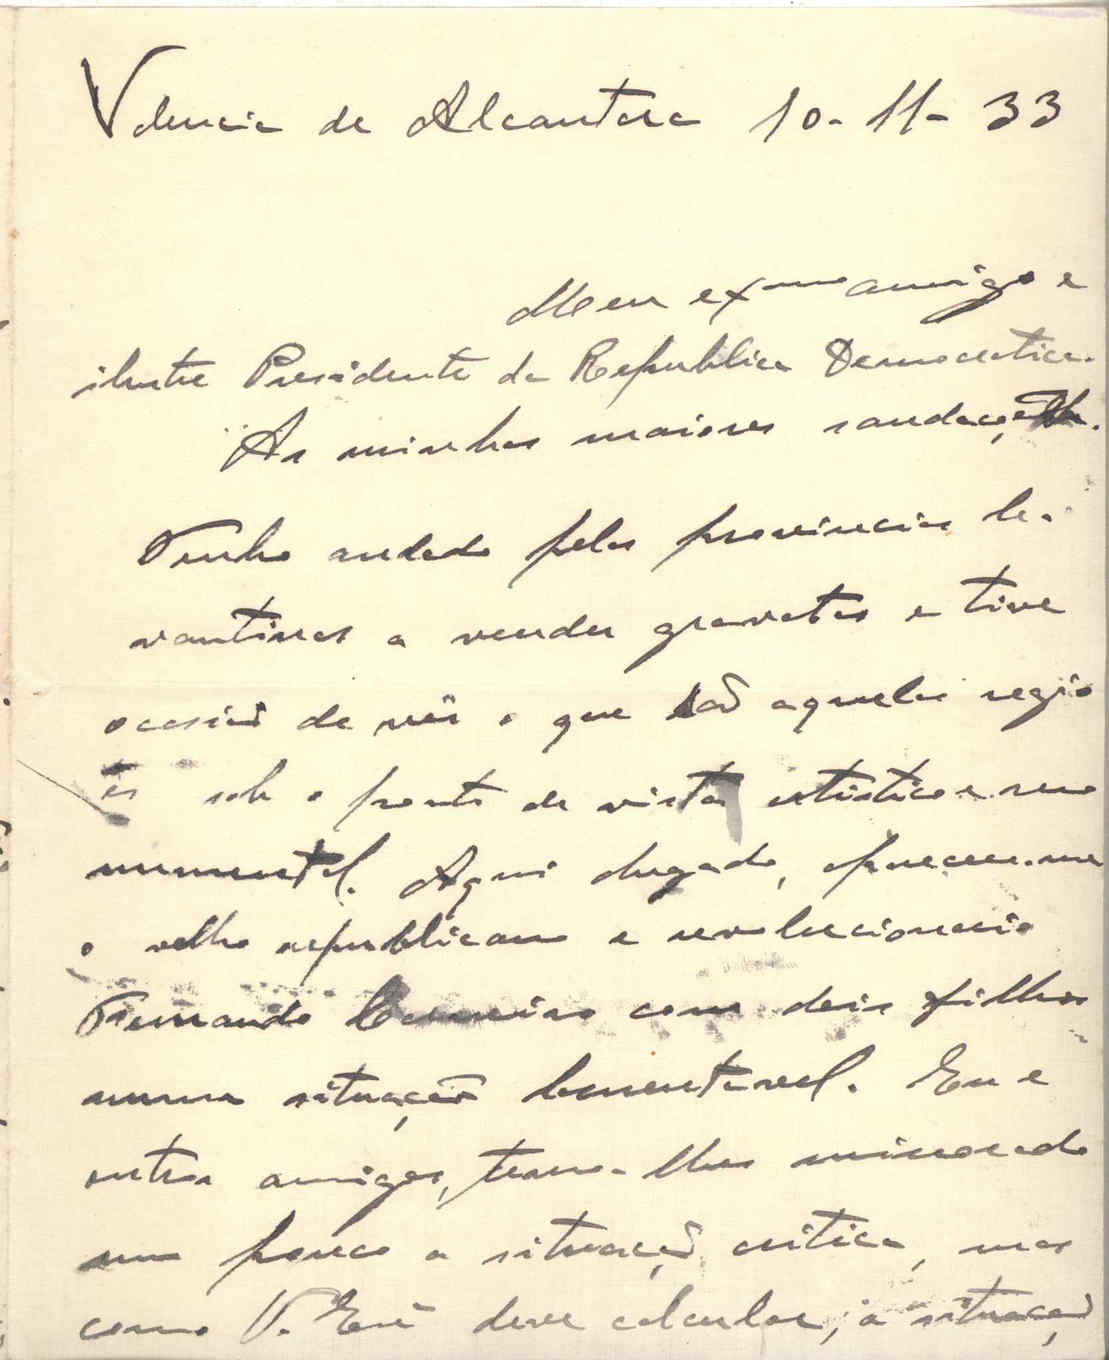 Valencia de Alcantara 10-11-33
Meu exmo amigo e
ilustre Presidente da Republica Democratica.
As minhas maiores saudações.
Tenho andado pelas provincias le-
vantinas a vender gravatas e tive
ocasião de vêr o que são aquelas regiõ
es sob o ponto de vista artistico e mo
numental. Aqui chegado, apareceu-me
o velho republicano e revolucionario
Fernando Carneiro com dois filhos
numa situação lamentavel. Eu e
outros amigos, temo-lhes minorado
um pouco a situação critica, mas
como V. Exª deve calcular, a situação